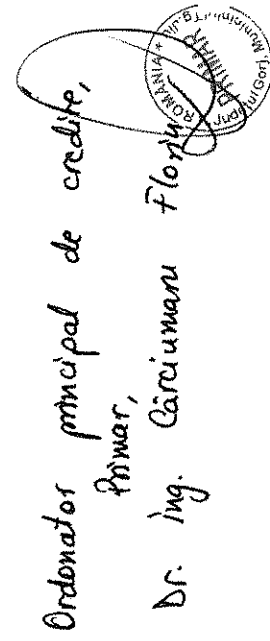 Ordonator principal de credite,
Primar,
Dr. ing. Cârciumaru Florin
ROMÂNIA
PRIMAR